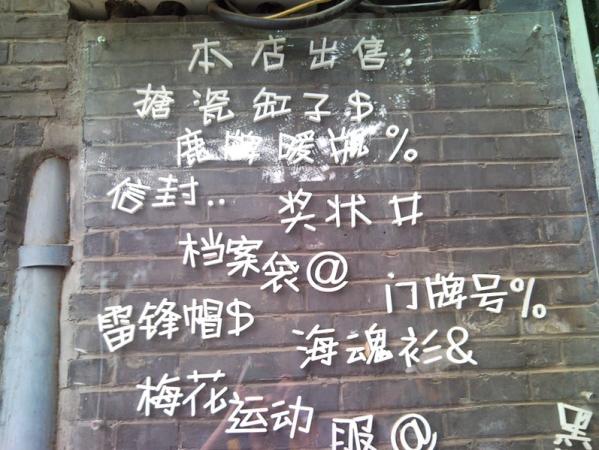 本店出售:
搪瓷缸子$
鹿牌暖瓶%
信封..
奖状#
档案袋@
门牌号%
雷锋帽$
海魂衫&
梅花运动服@
黑